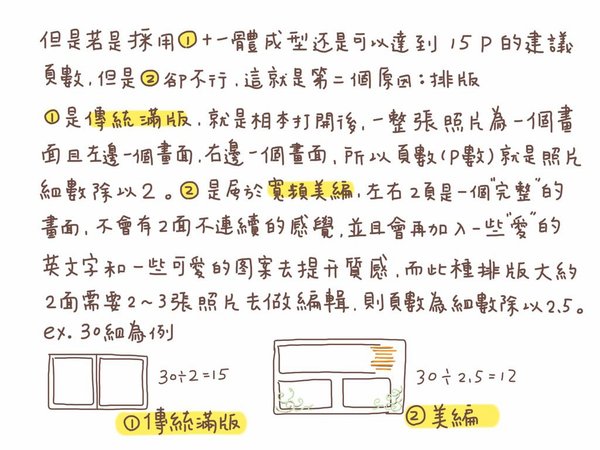 但是若是採用①+一體成型还是可以達到 15P的建議
頁數,但是②卻不行,這就是第二個原因:排版
①是傳統滿版,就是相本打開後,一整張照片為一個畫
面且左邊一個畫面,右邊一個畫面,所以頁數(P數)就是照片
細數除以2。②是屬於寬頻美編,左右2頁是一個"完整"的
畫面,不會有2面不連續的感覺,並且會再加入一些"愛"的
英文字和一些可愛的图案去提升質感,而此種排版大約
2面需要2~3張照片去做編輯,則頁數為細數除以2.5。
ex. 30細為例
30÷2=15
30÷2.5=12
①傳統滿版
②美編